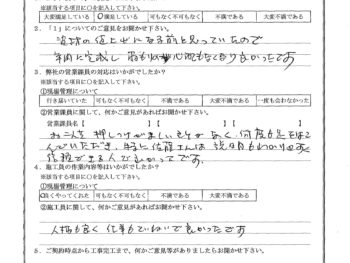 ※該当する項目に○を記入して下さい。
大変満足している ○満足している 可もなく不可もなく 不満である 大変不満である
2.「1」についてのご意見をお聞かせ下さい。
の値上がりになる前と思っていたので
年内に完成し
良かったです
3.弊社の営業課員の対応はいかがでしたか?
※該当する項目に○を記入して下さい。
①現場管理について
行き届いていた 可もなく不可もなく 不満である 大変不満である 一度も会わなかった
②営業課員に関して、何かご意見があればお聞かせ下さい。
営業課員名【 】【 】【 】
押しつけがましい
なく、何度も足を運
んでいただき、特に佐藤さんは説明もわかりやすく
信頼ができる人で良かったです。
4.施工員の作業内容等はいかがでしたか?
※該当する項目に○を記入して下さい。
①現場管理について
良くやってくれた 可もなく不可もなく 不満である 大変不満である
②施工員に関して、何かご意見があればお聞かせ下さい。
人柄も良く仕事もていねいで良かったです
5.ご契約時点から工事完工まで、何かご意見等がありましたらお聞かせ下さい。